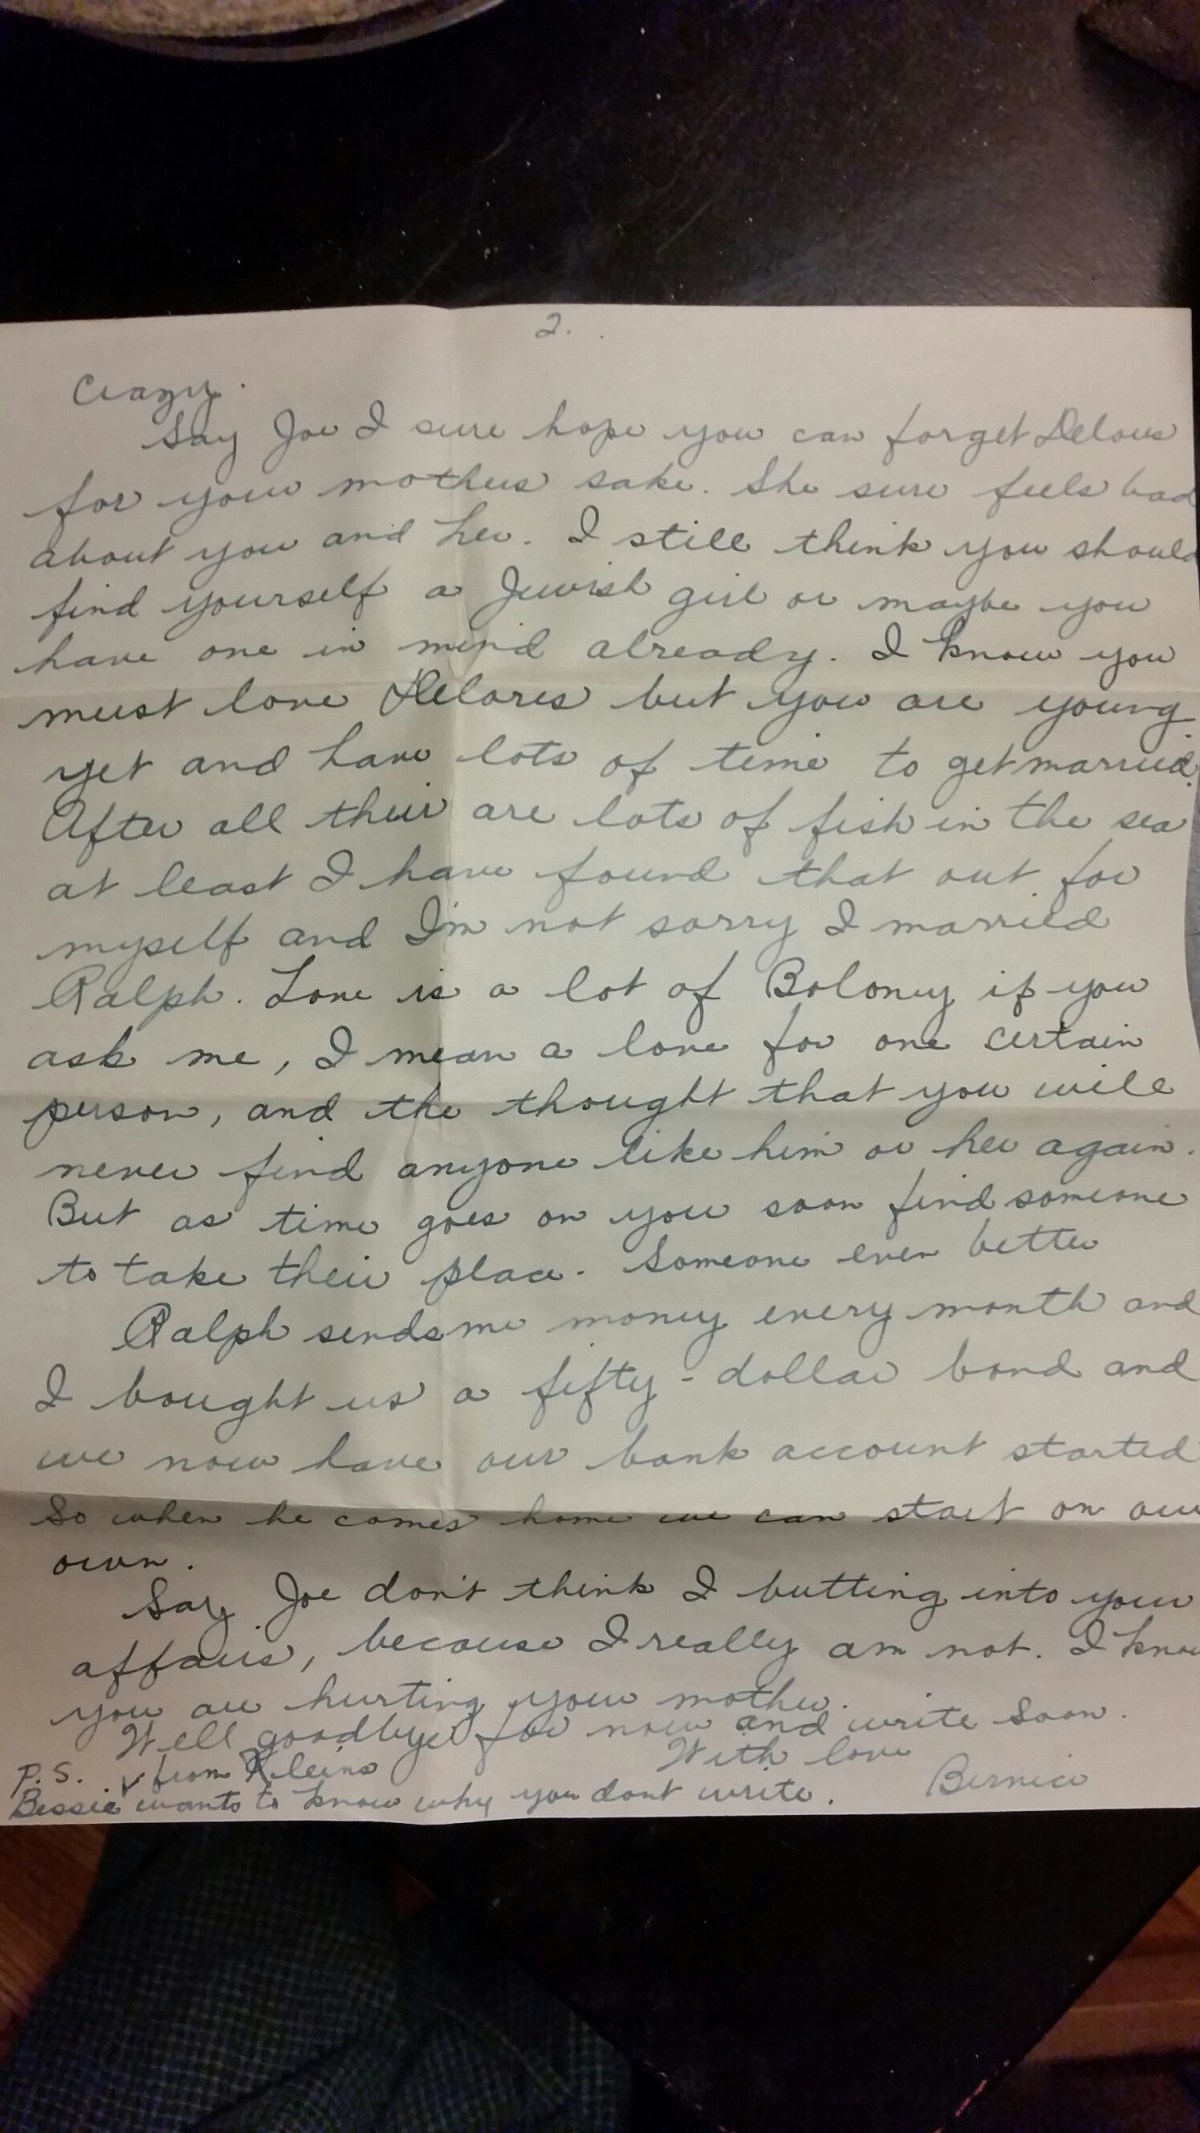 2.
Crazy.
Say Joe I sure hope you can forget Delores
for your mothers sake. She sure feels bad
about you and her. I still think you should
find yourself a Jewish girl or maybe you
have one in mind already. I know you
must love Delores but you are young
yet and have lots of time to get married.
After all their are lots of fish in the sea
at least I have found that out for
myself and I'm not sorry I married
Ralph. Love is a lot of Boloney if you
ask me, I mean a love for one certain
person, and the thought that you will
never find anyone like him or her again.
But as time goes on you soon find someone
to take their place. Someone even better
Ralph sends me money every month and
I bought us a fifty-dollar bond and
we now have our bank account started
So when he comes home we can start on our
own.
Say Joe don't think I butting into your
affairs, because I really am not. I know
you are hurting your mother.
Well goodbye for now and write soon.
With love
Bernice
P.S. from Kleins
Bessie wants to know why you dont write.